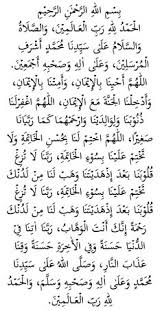 بِسْمِ اللهِ الرَّحْمٰنِ الرَّحِيْمِ
الْحَمْدُ لِلّٰهِ رَبِّ الْعَالَمِيْنَ، وَالصَّلَاةُ
وَالسَّلَامُ عَلَى سَيِّدِنَا مُحَمَّدٍ أَشْرَفِ
الْمُرْسَلِيْنَ، وَعَلَى آلِهِ وَصَحْبِهِ أَجْمَعِيْنَ.
اللّٰهُمَّ أَحْيِنَا بِالْإِيْمَانِ، وَأَمِتْنَا بِالْإِيْمَانِ،
وَأَدْخِلْنَا الْجَنَّةَ مَعَ الْإِيْمَانِ. اللّٰهُمَّ اغْفِرْلَنَا
ذُنُوْبَنَا وَلِوَالِدِيْنَا وَارْحَمْهُمَا كَمَا رَبَّيَانَا
صِغَارًا. اللّٰهُمَّ اخْتِمْ لَنَا بِحُسْنِ الْخَاتِمَةِ وَلَا
تَخْتِمْ عَلَيْنَا بِسُوْءِ الْخَاتِمَةِ. رَبَّنَا لَا تُزِغْ
قُلُوْبَنَا بَعْدَ إِذْهَدَيْتَنَا وَهَبْ لَنَا مِنْ لَدُنْكَ
تَخْتِمْ عَلَيْنَا بِسُوْءِ الْخَاتِمَةِ. رَبَّنَا لَا تُزِغْ
قُلُوْبَنَا بَعْدَ إِذْهَدَيْتَنَا وَهَبْ لَنَا مِنْ لَدُنْكَ
رَحْمَةً إِنَّكَ أَنْتَ الْوَهَّابُ. رَبَّنَا آتِنَا فِي
الدُّنْيَا حَسَنَةً وَفِي الْآخِرَةِ حَسَنَةً وَقِنَا
عَذَابَ النَّارِ، وَصَلَّى اللهُ عَلَى سَيِّدِنَا
مُحَمَّدٍ وَعَلَى آلِهِ وَصَحْبِهِ وَسَلَّمَ، وَالْحَمْدُ
لِلّٰهِ رَبِّ الْعَالَمِيْنَ.